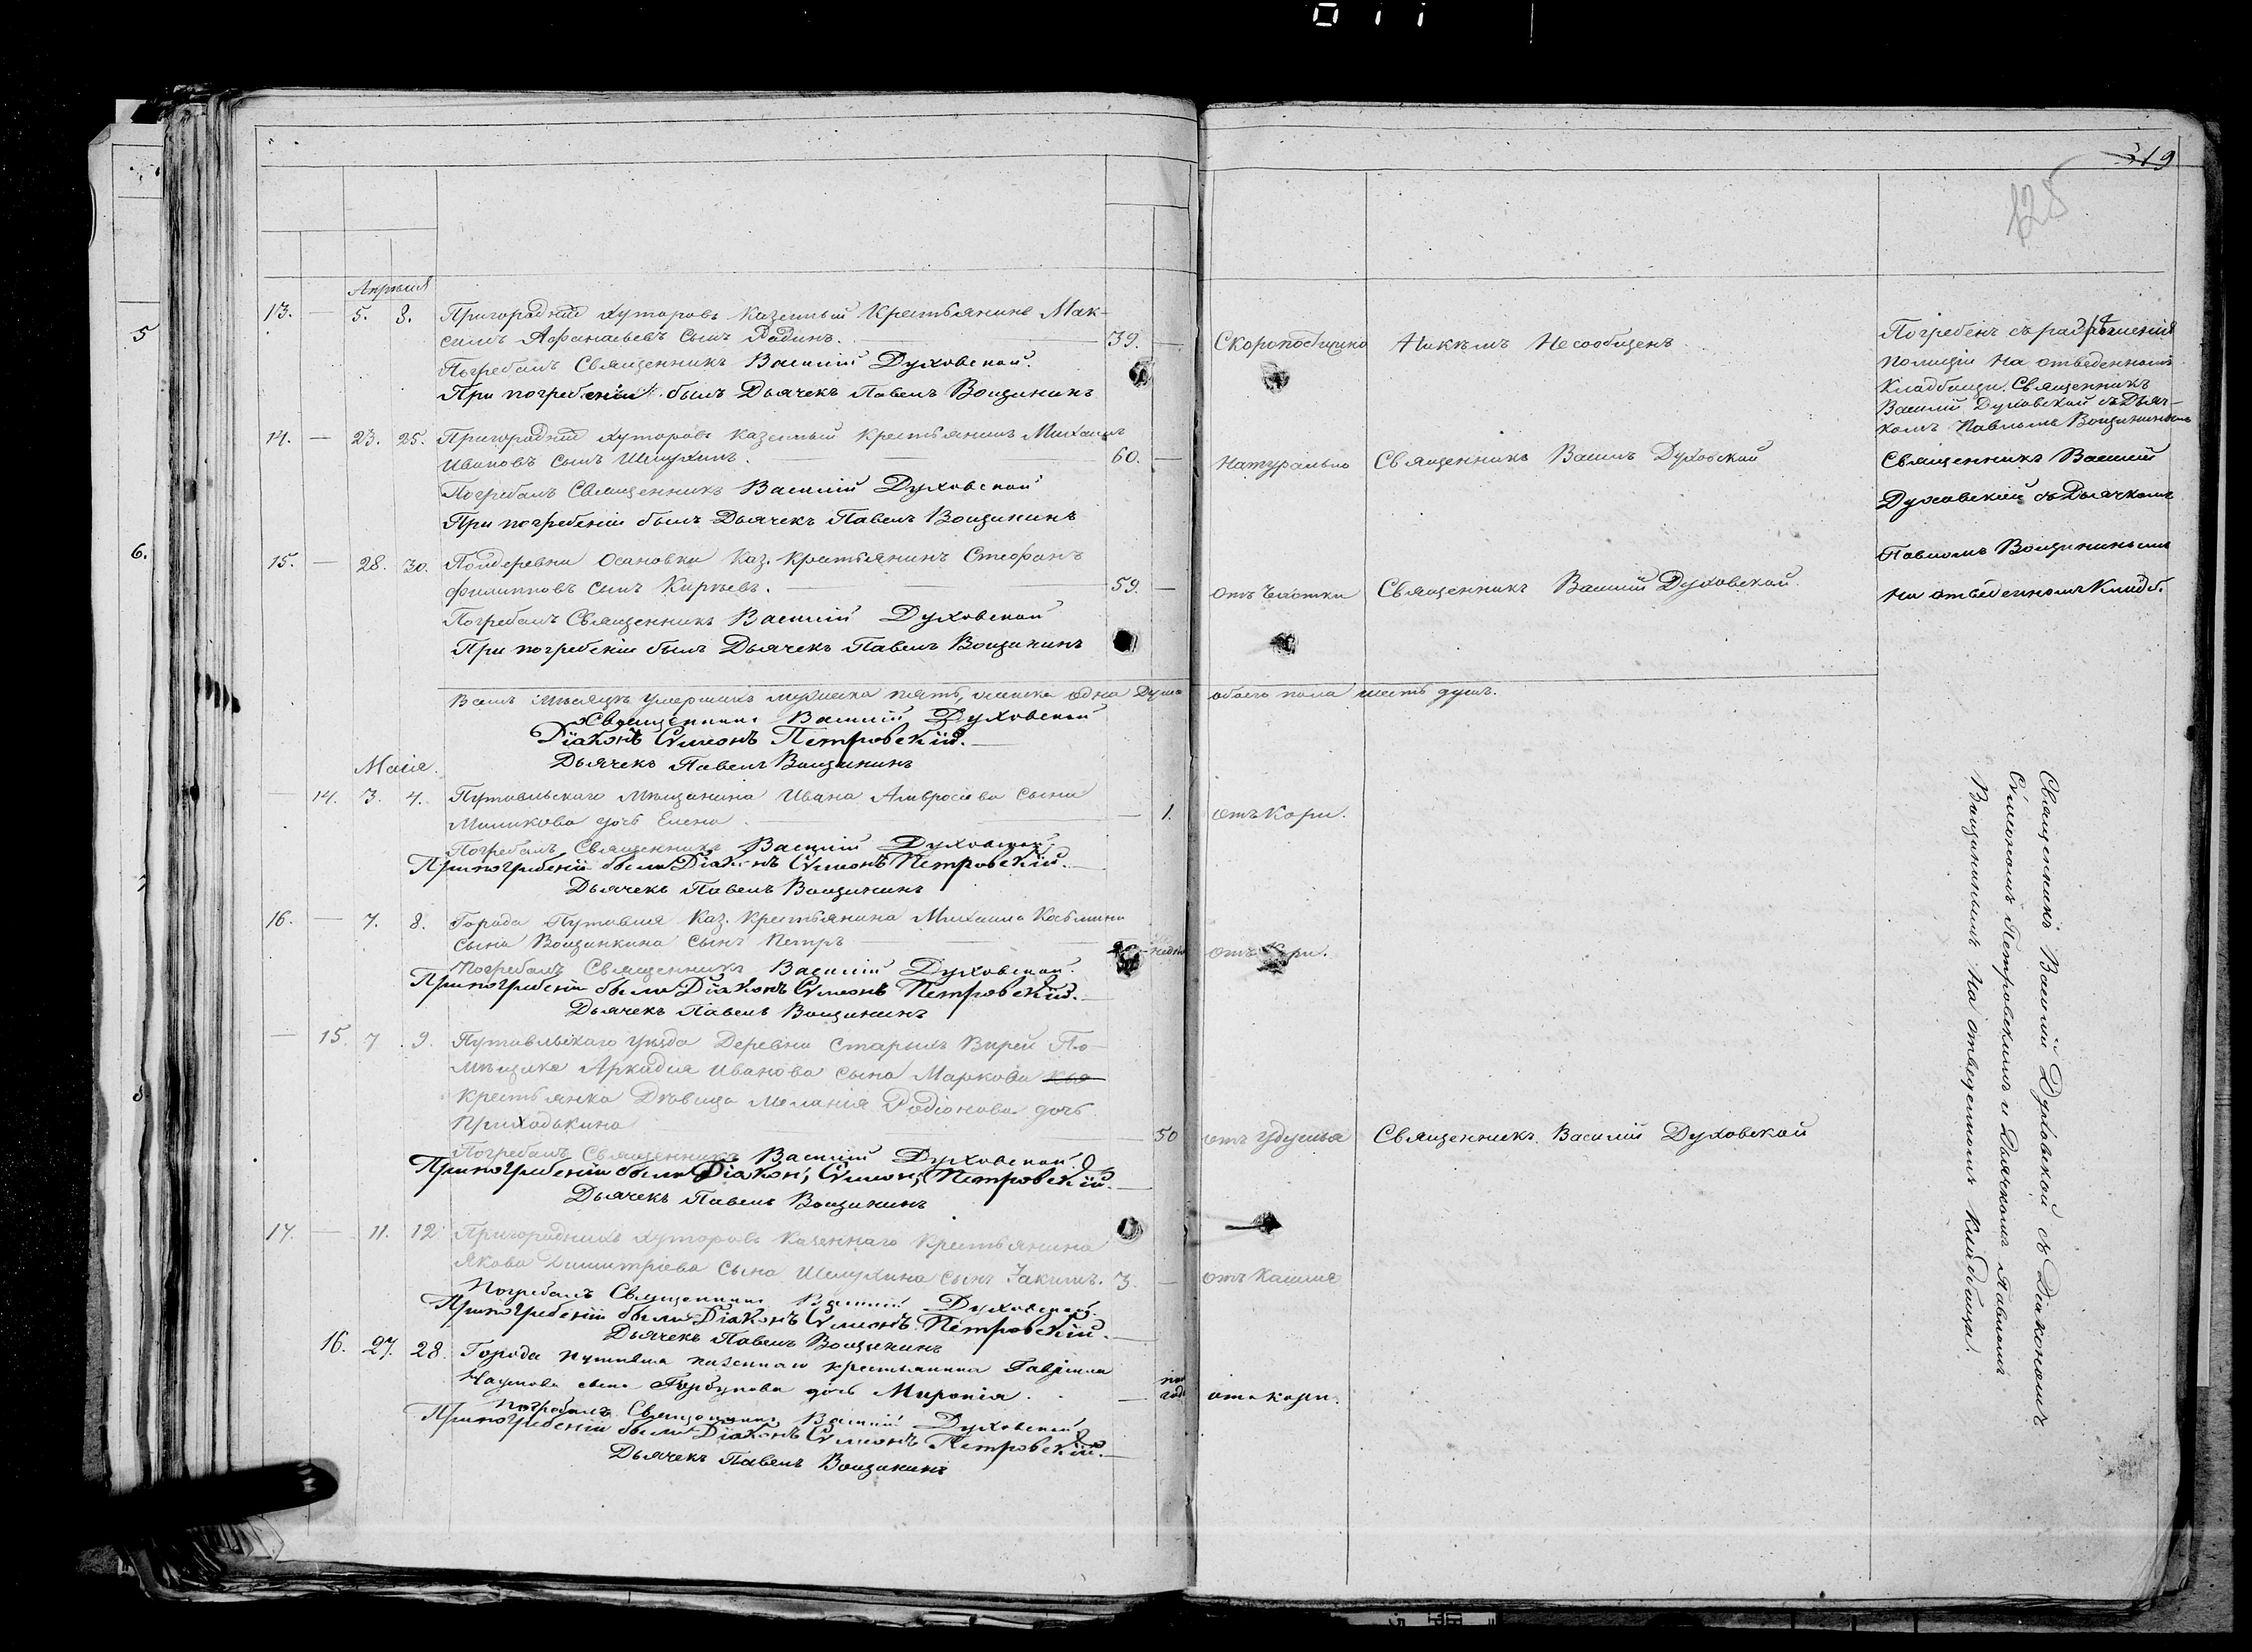 319
125
Апрѣля
13. — 5. 8. Пригородній хуторовъ казенный крестьянинъ Мак-
симъ Афанасьевъ сынъ Радинъ. 39. — Скоропостижно Никѣмъ Несообщенъ.
Погребалъ Священникъ Василій Духовской.
При погребеніи былъ Дьячекъ Павелъ Вощининъ
Погребенъ съ разрѣшенія
полиціи на отведенномъ
Кладбищи. Священникъ
Василій Духовской съ Дьяч-
комъ Павломъ Вощининымъ
14. — 23. 25. Пригородній хуторовъ казенный крестьянинъ Михаилъ
Ивановъ сынъ Шелухинъ. 60. — Натурально Священникъ Василій Духовской
Погребалъ Священникъ Василій Духовской
При погребеніи былъ Дьячекъ Павелъ Вощининъ
Священникъ Василій
Духовской съ Дьячкомъ
Павломъ Вощининымъ
на отведенномъ Кладб.
15. — 28. 30. Осановки Каз. Крестьянинъ Стефанъ
Филипповъ сынъ Кирѣевъ. 59. — отъ Чахотки Священникъ Василій Духовской.
Погребалъ Священникъ Василій Духовской
При погребеніи былъ Дьячекъ Павелъ Вощининъ
мѣсяцѣ умершихъ мужеска пять, женска одна душа обоего пола шесть душъ.
Священникъ Василій Духовской
Діаконъ Сѵмеонъ Петровскій.
Дьячекъ Павелъ Вощининъ
Маія.
— 14. 3. 4. Путивльскаго мѣщанина Ивана Амвросіева сына
дочь Елена. — 1. отъ Кори.
Погребалъ Священникъ Василій Духовской
При погребеніи были Діаконъ Сѵмеонъ Петровскій.
Дьячекъ Павелъ Вощининъ
16. — 7. 8. Города Путивля Каз. Крестьянина Михаила Козьмина
сына Вощинкина сынъ Петръ отъ Кори.
Погребалъ Священникъ Василій Духовской.
При погребеніи были Діаконъ Сѵмеонъ Петровскій.
Дьячекъ Павелъ Вощининъ
— 15. 7. 9. Путивльскаго уѣзда Деревни Старыхъ Вирей По-
мѣщика Аркадія Иванова сына Маркова
Крестьянка Дѣвица Меланія Родіонова дочь
Приходькина — 50 отъ удушья Священникъ Василій Духовской
Погребалъ Священникъ Василій Духовской.
При погребеніи были Діаконъ, Сѵмеонъ, Петровскій.
Дьячекъ Павелъ Вощининъ
17. — 11. 12 Пригородныхъ хуторовъ Казеннаго Крестьянина
Якова Димитріева сына Шелухина сынъ Іакимъ. 3. — отъ Кашля
Погребалъ Священникъ Василій Духовской.
При погребеніи были Діаконъ Сѵмеонъ Петровскій.
Дьячекъ Павелъ Вощининъ
16. 27. 28. Города Путивля казеннаго крестьянина Гавріила
Наумова сына Горбунова дочь Миропія. — пол года отъ кори.
Погребалъ Священникъ Василій Духовской
При погребеніи были Діаконъ Сѵмеонъ Петровскій.
Дьячекъ Павелъ Вощининъ
Священникъ Василій Духовской съ Діакономъ
Сѵмеономъ Петровскимъ и Дьячкомъ Павломъ
Вощининымъ на отведенномъ Кладбищи.
5
6.